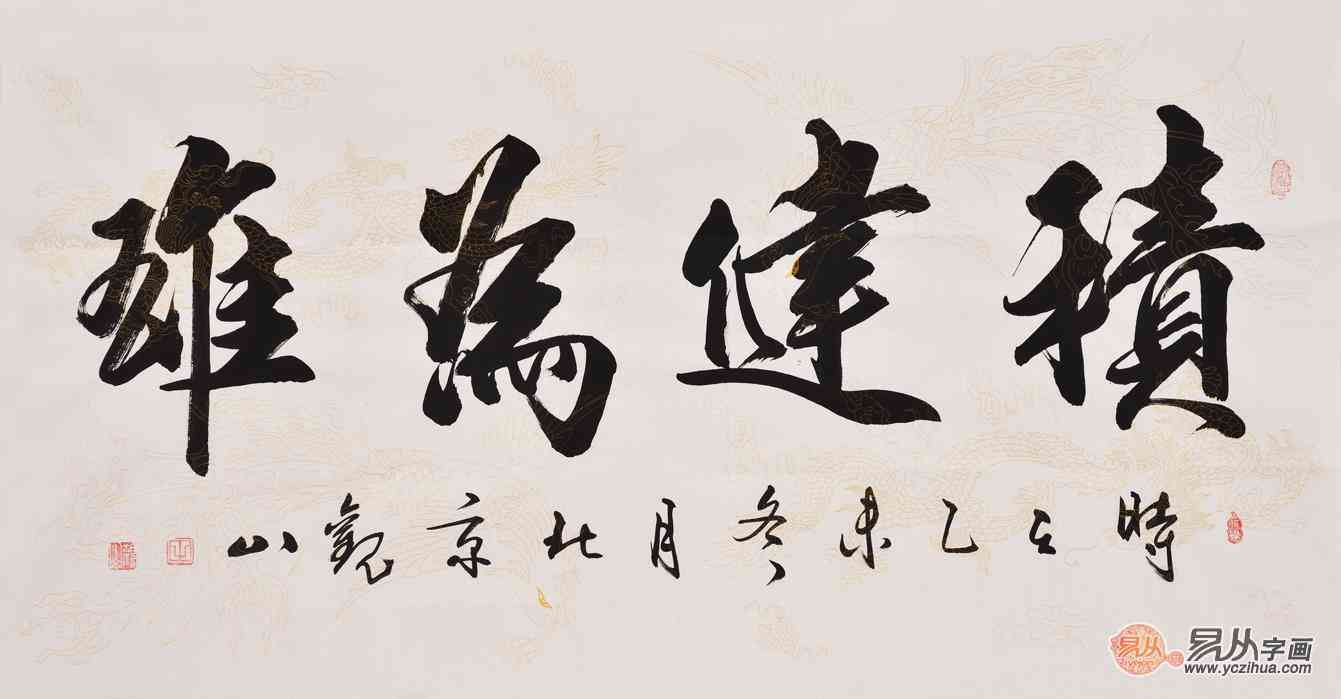 積健為雄
時在乙未冬月北京觀山
易从
易从字画
www.yczihua.com